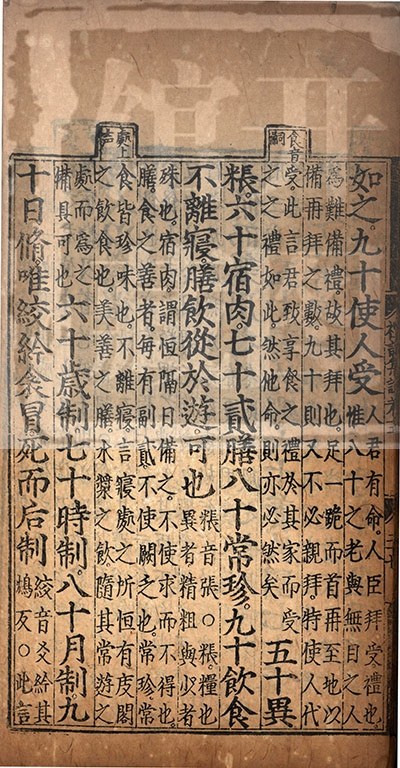 如之九十使人受人君有命人臣拜受禮也惟八十之老與無目之人
爲難備禮故其拜也足一跪而首再至地以
備再拜之數九十則又不必親拜特使人代
受此言君致享食之禮於其家而受
之之禮如此然他命則亦必然矣五十異
食音嗣
粻六十宿肉七十貳膳八十常珍九十飲食
不離寢膳飲從於遊可也粻音張○粻糧也異者精粗與少者
殊也宿肉謂恒隔日備之不使求而不得也
膳食之善者每有副貳不使闕乏也常珍常
食皆珍味也不離寢言寢處之所恒有庋閣
之飲食也美善之膳水漿之飲隨其常遊之
處上声
處而爲之
備具可也六十歲制七十時制八十月制九
十日脩唯絞紟衾冒死而后制絞音爻紟其鴆反○此言